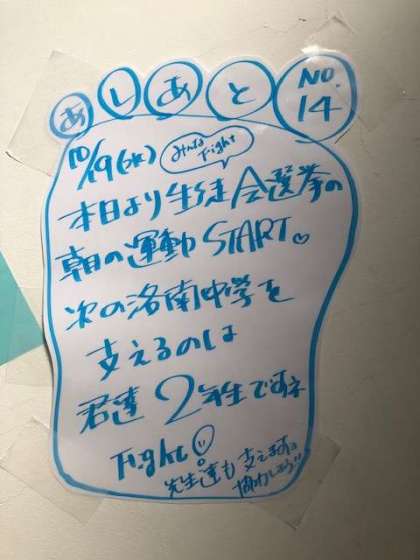 あしあと NO.14
10/19(水) みんなFight
本日より生徒会選挙の
朝の運動START♡
次の洛南中学を
支えるのは
君達2年生ですネ
Fight!
先生達も支えます
協力しよう